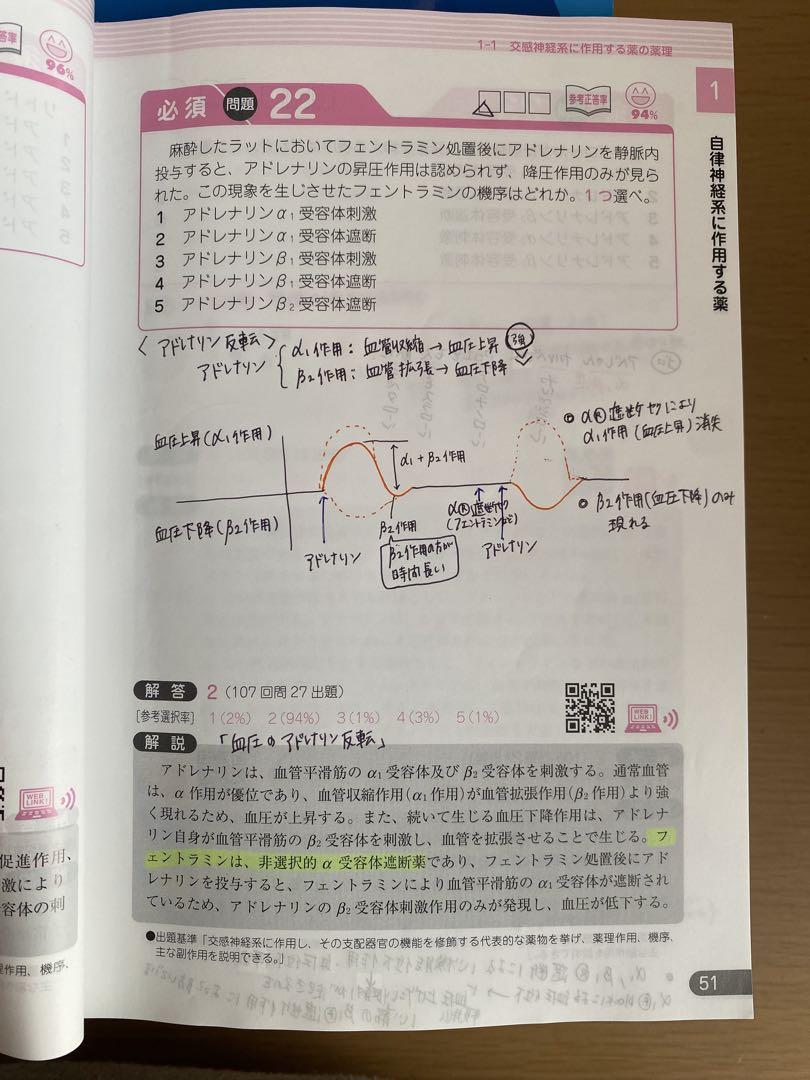 1-1 交感神経系に作用する薬の薬理
答率
96%
リ
ド
1 ア
2 ア
3 ア
4 ア
5 ア
必須 問題 22
参考正答率
94%
麻酔したラットにおいてフェントラミン処置後にアドレナリンを静脈内
投与すると、アドレナリンの昇圧作用は認められず、降圧作用のみが見ら
れた。この現象を生じさせたフェントラミンの機序はどれか。1つ選べ。
1 アドレナリンα₁受容体刺激
2 アドレナリンα₁受容体遮断
3 アドレナリンβ₁受容体刺激
4 アドレナリンβ₁受容体遮断
5 アドレナリンβ₂受容体遮断
1
自律神経系に作用する薬
〈アドレナリン反転〉
アドレナリン
α₁作用:血管収縮→血圧上昇 強
β₂作用:血管拡張→血圧下降
血圧上昇(α₁作用)
血圧下降(β₂作用)
α₁+β₂作用
アドレナリン
β₂作用
β₂作用の方が
時間長い
α 遮断
(フェントラミンなど)
アドレナリン
α 遮断 により
α₁作用(血圧上昇)消失
β₂作用(血圧下降)のみ
現れる
解答 2 (107回問27出題)
[参考選択率] 1(2%) 2(94%) 3(1%) 4(3%) 5(1%)
WEB LINK!
解説 「血圧のアドレナリン反転」
アドレナリンは、血管平滑筋のα₁受容体及びβ₂受容体を刺激する。通常血管
は、α作用が優位であり、血管収縮作用(α₁作用)が血管拡張作用(β₂作用)より強
く現れるため、血圧が上昇する。また、続いて生じる血圧下降作用は、アドレナ
リン自身が血管平滑筋のβ₂受容体を刺激し、血管を拡張させることで生じる。フ
ェントラミンは、非選択的α受容体遮断薬であり、フェントラミン処置後にアド
レナリンを投与すると、フェントラミンにより血管平滑筋のα₁受容体が遮断され
ているため、アドレナリンのβ₂受容体刺激作用のみが発現し、血圧が低下する。
●出題基準「交感神経系に作用し、その支配器官の機能を修飾する代表的な薬物を挙げ、薬理作用、機序、
主な副作用を説明できる。」
51
WEB LINK!
促進作用、
激により
容体の刺
理作用、機序、